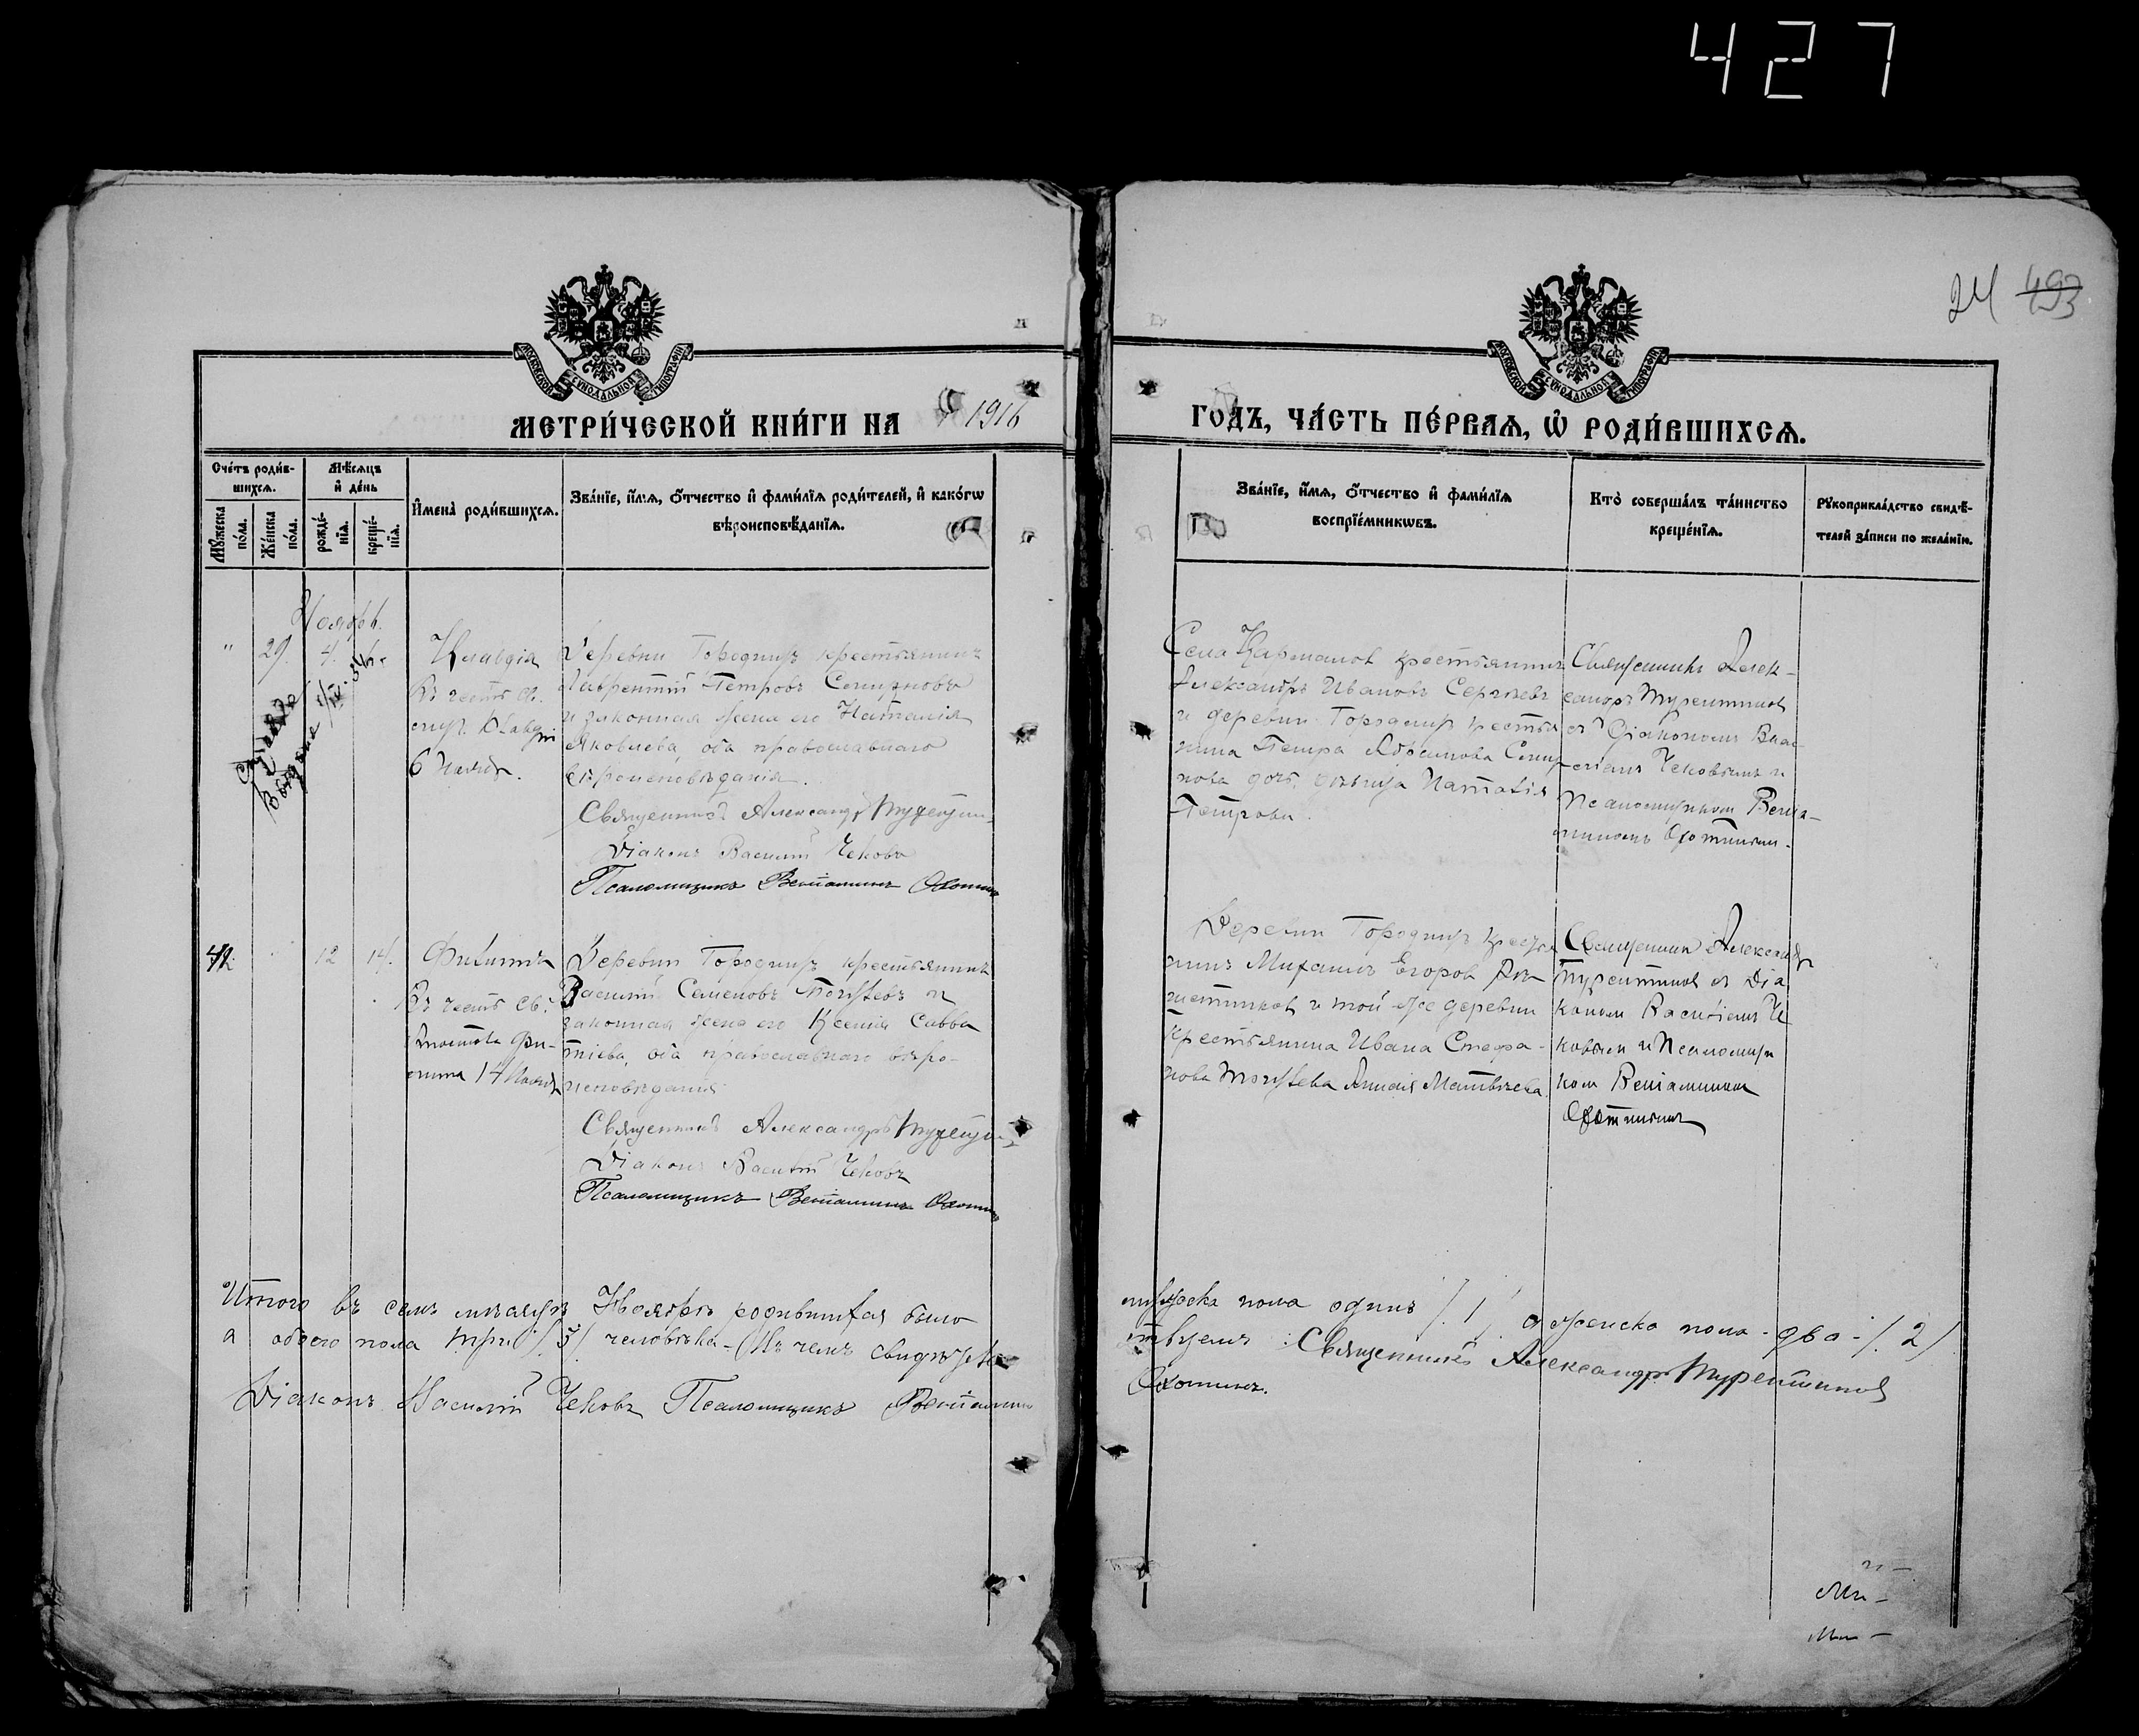 427
24 493
МОСКОВСКОЙ СѴНОДАЛЬНОЙ ТИПОГРАФІИ
МОСКОВСКОЙ СѴНОДАЛЬНОЙ ТИПОГРАФІИ
МЕТРИ́ЧЕСКОЙ КНИ́ГИ НА 1916 ГОДЪ, ЧА́СТЬ ПЕ́РВАѦ, Ѡ҆ РОДИ́ВШИХСѦ.
Сче́тъ роди́в-
шихсѧ.
Мꙋ́жеска по́ла.
Же́нска по́ла.
Мѣ́сѧцъ
и҆ де́нь
рожде́-
нїѧ.
креще́-
нїѧ.
И҆мена̀ роди́вшихсѧ.
Зва́нїе, и҆́мѧ, ѻ҆́тчество и҆ фами́лїѧ роди́телей, и҆ како́гѡ
вѣроисповѣ́данїѧ.
Зва́нїе, и҆́мѧ, ѻ҆́тчество и҆ фами́лїѧ
воспрїе́мникѡвъ.
Кто̀ соверша́лъ та́инство
креще́нїѧ.
Рꙋкоприкла́дство свидѣ́-
телей за́писи по жела́нїю.
Ноябрь.
" 29. 4.
Клавдія
Въ честь св.
6 Ноября.
Деревни Городищъ крестьянинъ
Лаврентій Петровъ Смирновъ
и законная жена его Наталія
Яковлева, оба православнаго
вѣроисповѣданія.
Священникъ Александръ
Діаконъ Василій Чековъ
Псаломщикъ Веніаминъ Охотинъ
Села крестьянинъ
Александръ Ивановъ Сергѣевъ
и деревни Городищъ крестья
нина Петра Абрамова Смир
нова дочь, дѣвица Наталія
Петрова.
Священникъ Алек-
сандръ
съ Діакономъ Васи-
ліемъ Чековымъ и
Псаломщикомъ Веніа-
миномъ Охотинымъ.
12 14.
Филиппъ
Въ честь Св.
Апостола Фи-
липпа 14 Ноября
Деревни Городищъ крестьянинъ
Василій Семеновъ и
законная жена его Ксенія Савва
тіева, оба православнаго вѣро-
исповѣданія
Священникъ Александръ
Діаконъ Василій Чековъ
Псаломщикъ Веніаминъ Охотинъ
Деревни Городищъ крестья
нинъ Михаилъ Егоровъ
и той же деревни
крестьянина Ивана Стефа-
нова Матвѣева
Священникъ Александръ
съ Діа
кономъ Василіемъ Че
ковымъ и Псаломщи
комъ Веніаминомъ
Охотинымъ
Итого въ семъ мѣсяцѣ Ноябрѣ родившихся было мужеска пола одинъ /1/, а женска пола - два - /2/
а обоего пола три /3/ человѣка - Въ чемъ свидѣтель ствуемъ: Священникъ Александръ
Діаконъ Василій Чековъ Псаломщикъ Веніаминъ Охотинъ.